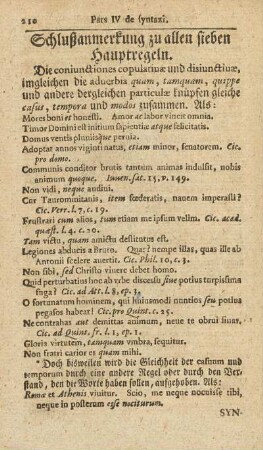 210 Pars IV de syntaxi.
Schlußanmerkung zu allen sieben
Hauptregeln.
Die coniunctiones copulatiuæ und disiunctiuæ,
imgleichen die aduerbia quam, tamquam, quippe
und andere dergleichen particulæ knüpfen gleiche
casus, tempora und modos zusammen. Als:
Mores boni et honesti. Amor ac labor vincit omnia.
Timor Domini est initium sapientiæ atque felicitatis.
Domus ventis pluuiisque peruia.
Adoptat annos viginti natus, etiam minor, senatorem. Cic.
pro domo.
Communis conditor brutis tantum animas indulsit, nobis
animum quoque. Iuuen. sat. 15, v. 149.
Non vidi, neque audiui.
Cur Taurominitanis, item fœderatis, nauem imperasti?
Cic. Verr. l. 7, c. 19.
Frustrari cum alios, tum etiam me ipsum vellem. Cic. acad.
quæst. l. 4. c. 20.
Tam victu, quam amictu destitutus est.
Legiones abducis a Bruto. Quæ? nempe illas, quas ille ab
Antonii scelere auertit. Cic. Phil. 10, c. 3.
Non sibi, sed Christo viuere debet homo.
Quid perturbatius hoc ab vrbe discessu siue potius turpissima
fuga? Cic. ad Att. l. 8, ep. 3.
O fortunatum hominem, qui huiusmodi nuntios, seu potius
pegasos habeat! Cic. pro Quint. c. 25.
Ne contrahas aut demittas animum, neue te obrui sinas.
Cic. ad Quint. fr. l. 1, ep. 1.
Gloria virtutem, tamquam vmbra, sequitur.
Non fratri carior es quam mihi.
* Doch bisweilen wird die Gleichheit der casuum und
temporum durch eine andere Regel oder durch den Ver-
stand, den die Worte haben sollen, aufgehoben. Als:
Romæ et Athenis viuitur. Scio, me neque nocuisse tibi,
neque in posterum esse nociturum.
SYN-